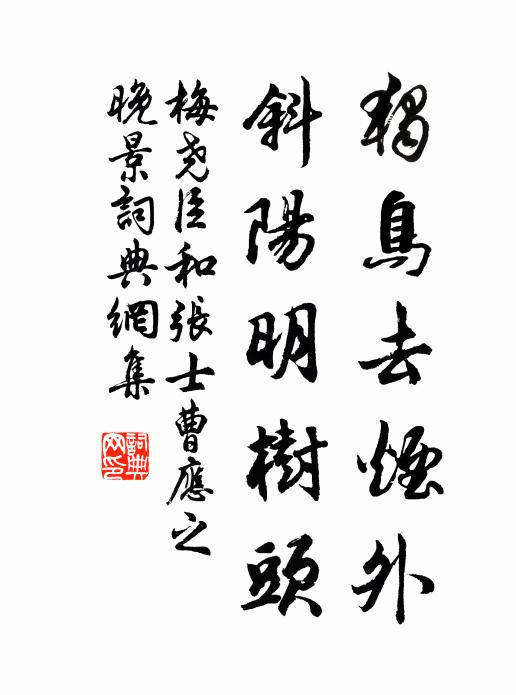 獨鳥去煙外
斜陽明樹頭
梅堯臣和張士曹應之
晚景詞典網集
詞典网印